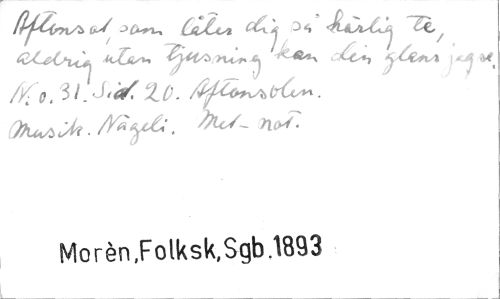 Aftonsol, som låter dig så härlig te,
aldrig utan tjusning kan din glans jag se.
N:o. 31. Sid. 20. Aftonsolen.
Musik. Nägeli. Met-not.
Morèn,Folksk,Sgb.1893